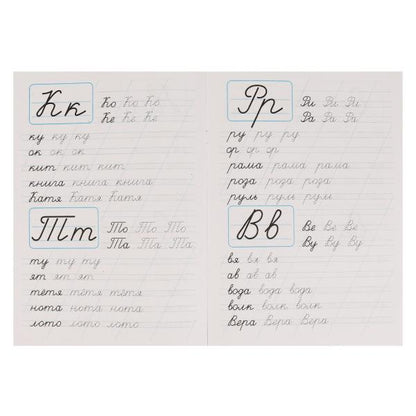 Кк Ко Ко Ко
Ке Ке Ке
ку ку ку
ок ок ок
кит кит кит
книга книга книга
Катя Катя Катя
Тт То То То
Та Та Та
ту ту ту
ят ят ят
тётя тётя тётя
нота нота нота
лото лото лото
Рр Ри Ри Ри
Ра Ра Ра
ру ру ру
ор ор ор
рама рама рама
роза роза роза
руль руль руль
Вв Ве Ве Ве
Ву Ву Ву
вя вя вя
ав ав ав
вода вода вода
волк волк волк
Вера Вера Вера